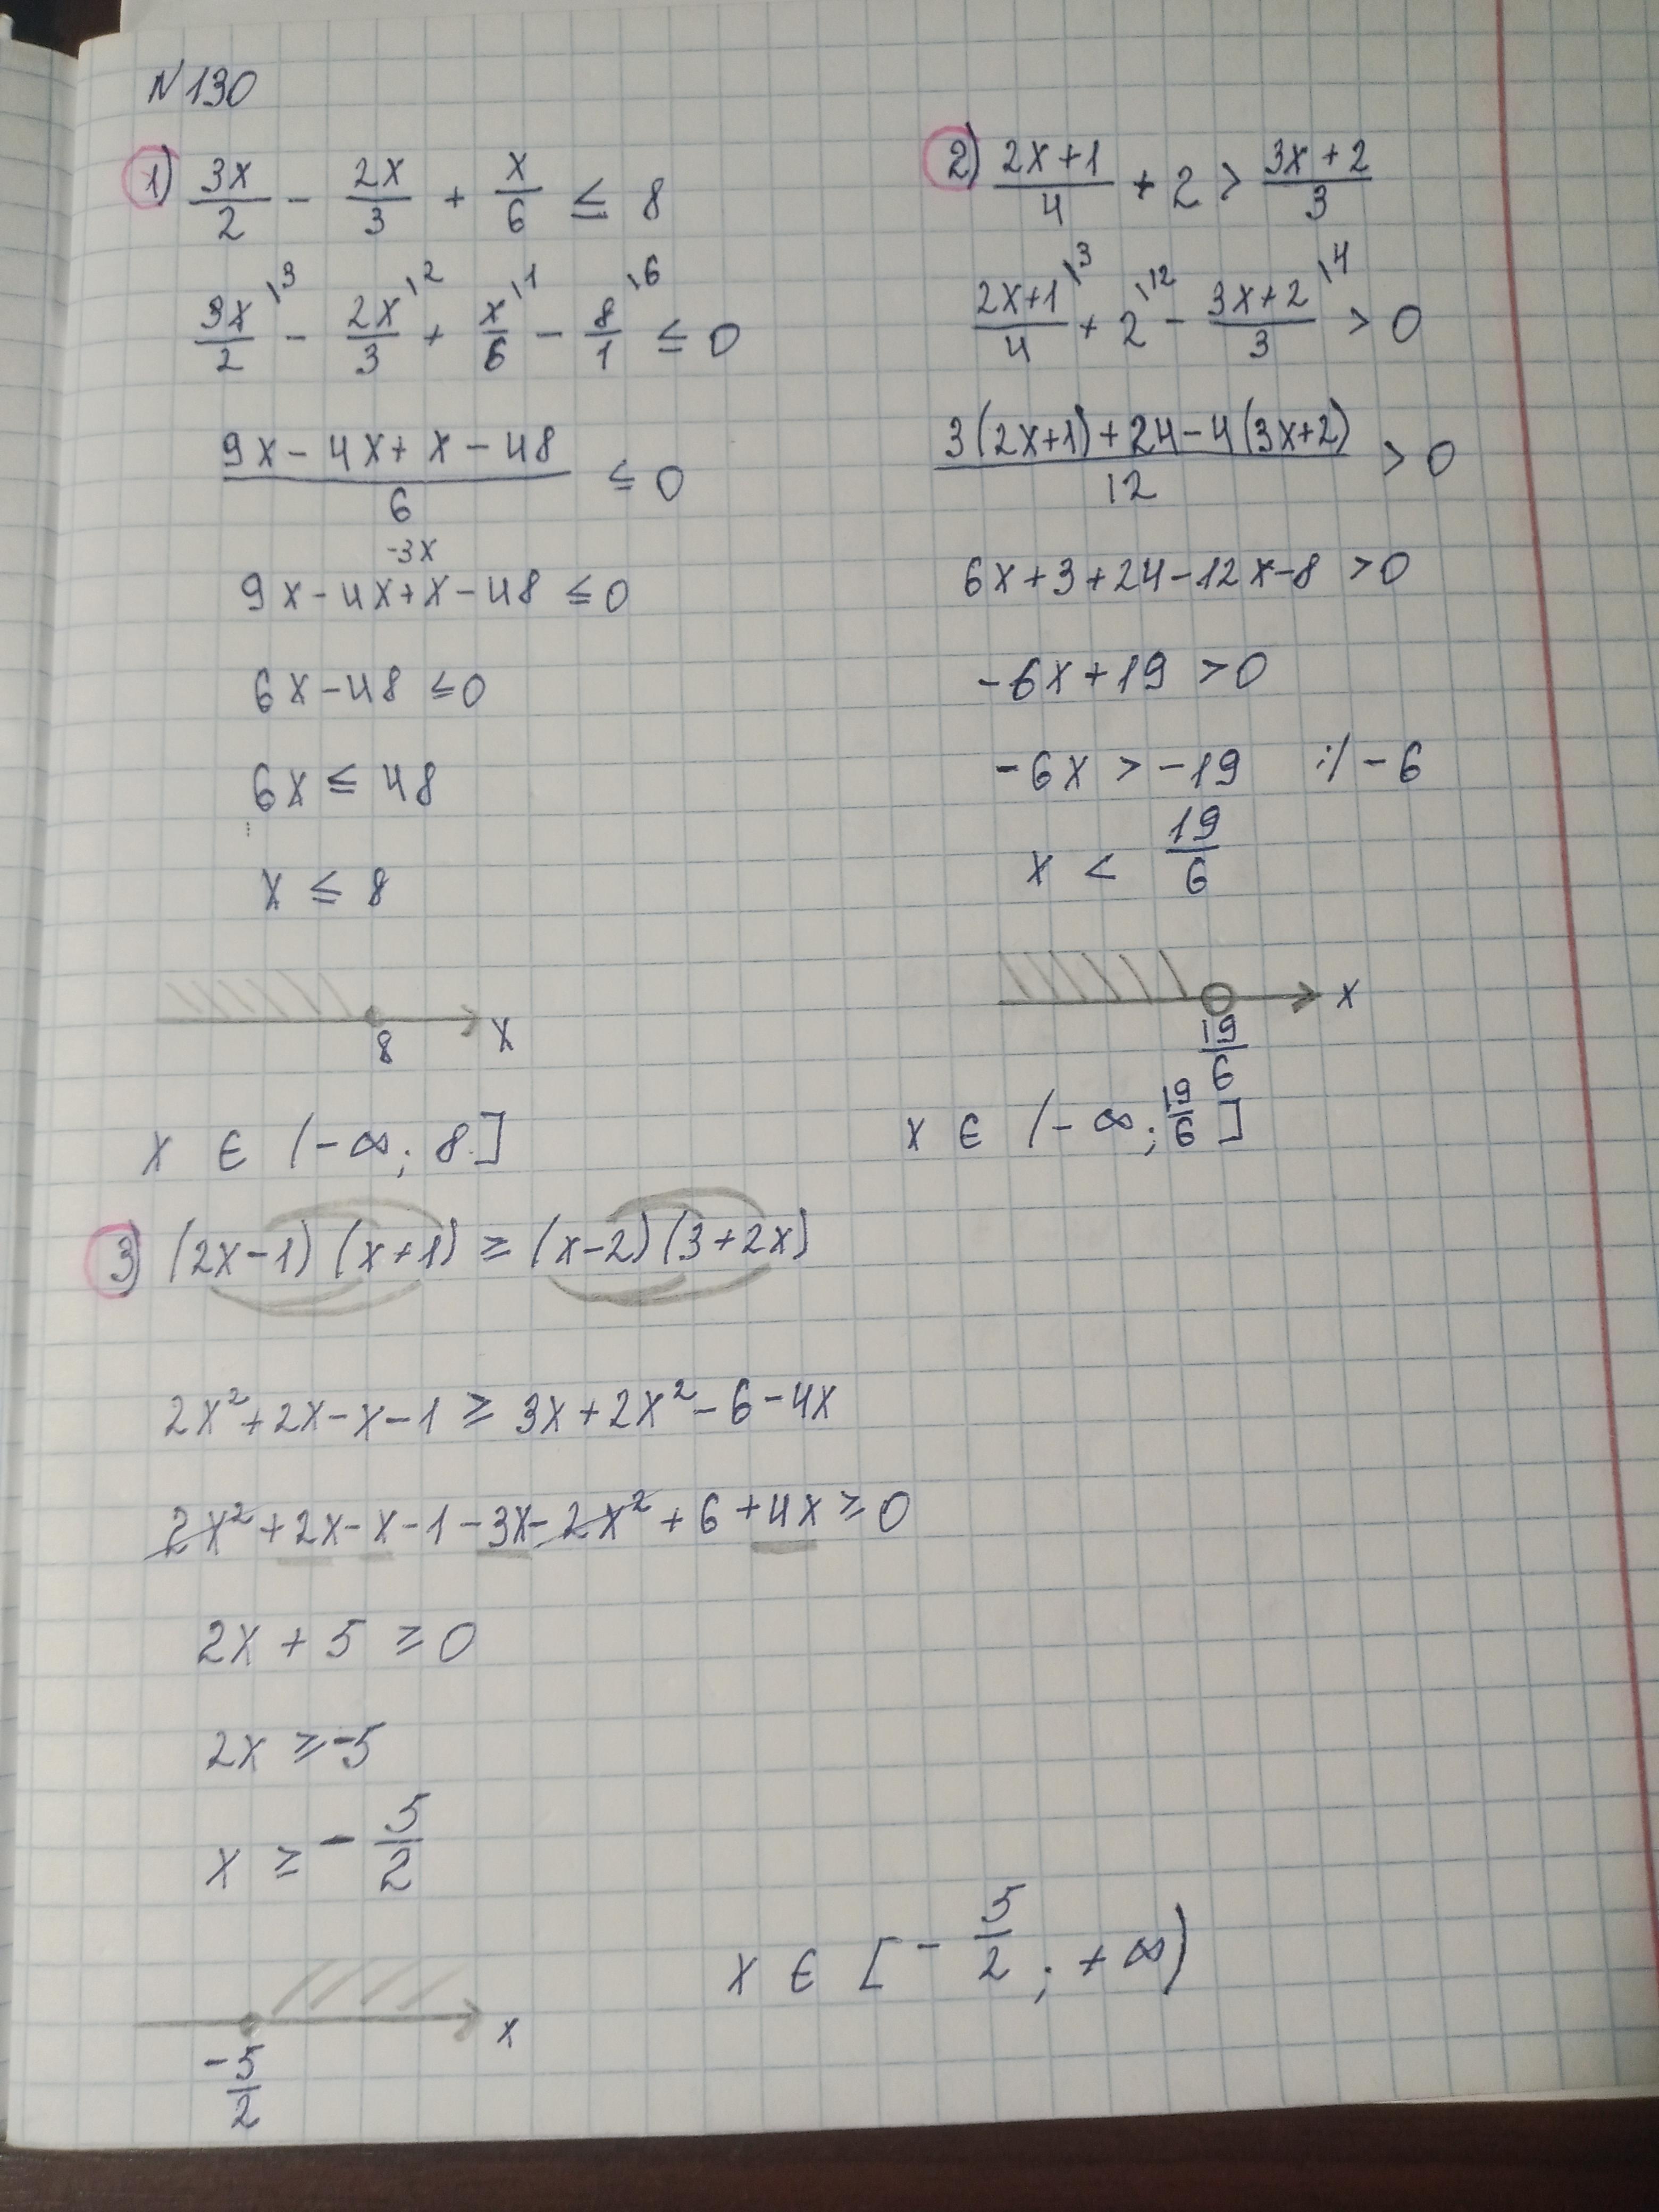 N 130
1) 3x/2 - 2x/3 + x/6 ≤ 8
3x/2 \3 - 2x/3 \2 + x/6 \1 - 8/1 \6 ≤ 0
(9x - 4x + x - 48)/6 ≤ 0
-3x
9x - 4x + x - 48 ≤ 0
6x - 48 ≤ 0
6x ≤ 48
x ≤ 8
8 x
x ∈ (-∞; 8]
2) (2x+1)/4 + 2 > (3x+2)/3
(2x+1)/4 \3 + 2 \12 - (3x+2)/3 \4 > 0
(3(2x+1)+24-4(3x+2))/12 > 0
6x+3+24-12x-8 > 0
-6x+19 > 0
-6x > -19 :/ -6
x < 19/6
19/6 x
x ∈ (-∞; 19/6]
3) (2x-1)(x+1) ≥ (x-2)(3+2x)
2x²+2x-x-1 ≥ 3x+2x²-6-4x
2x²+2x-x-1-3x-2x²+6+4x ≥ 0
2x + 5 ≥ 0
2x ≥ -5
x ≥ - 5/2
-5/2 x
x ∈ [- 5/2; +∞)